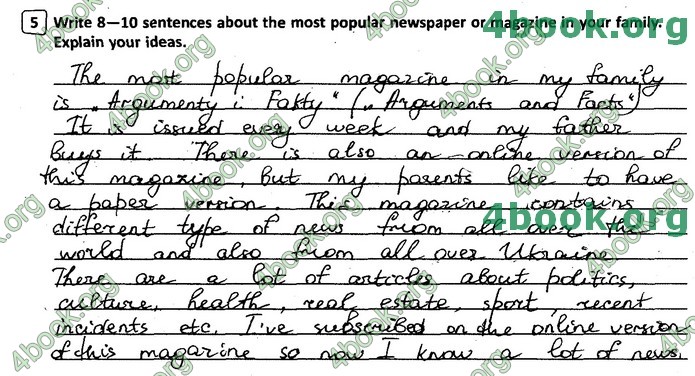 5 Write 8—10 sentences about the most popular newspaper or magazine in your family.
Explain your ideas.
The most popular magazine in my family
is „Argumenty i Fakty" („Arguments and Facts")
It is issued every week and my father
buys it. There is also an online version of
this magazine, but my parents like to have
a paper version. This magazine contains
different type of news from all over the
world and also from all over Ukraine.
There are a lot of articles about politics,
culture, health, real estate, sport, recent
incidents etc. I've subscribed on the online version
of this magazine so now I know a lot of news.
4book.org
4book.org
4book.org
4book.org
4book.org
4book.org